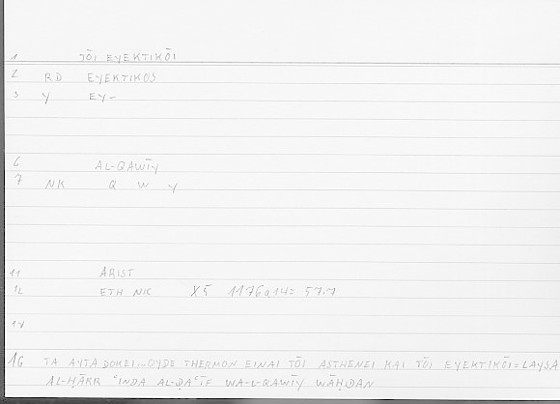 1 TŌI EYEKTIKŌI
2 RD EYEKTIKOS
3 Y EY-
6 AL-QAWĪY
7 NK Q W Y
11 ARIST
12 ETH NK X5 1176a14= 57.7
14
16 TA AYTA DOKEI_OYDE THERMON EINAI TŌI ASTHENEI KAI TŌI EYEKTIKŌI=LAYSA
AL-ḤĀRR ʿINDA AL-ḌAʿĪF WA-L-QAWĪY WĀḤIDAN